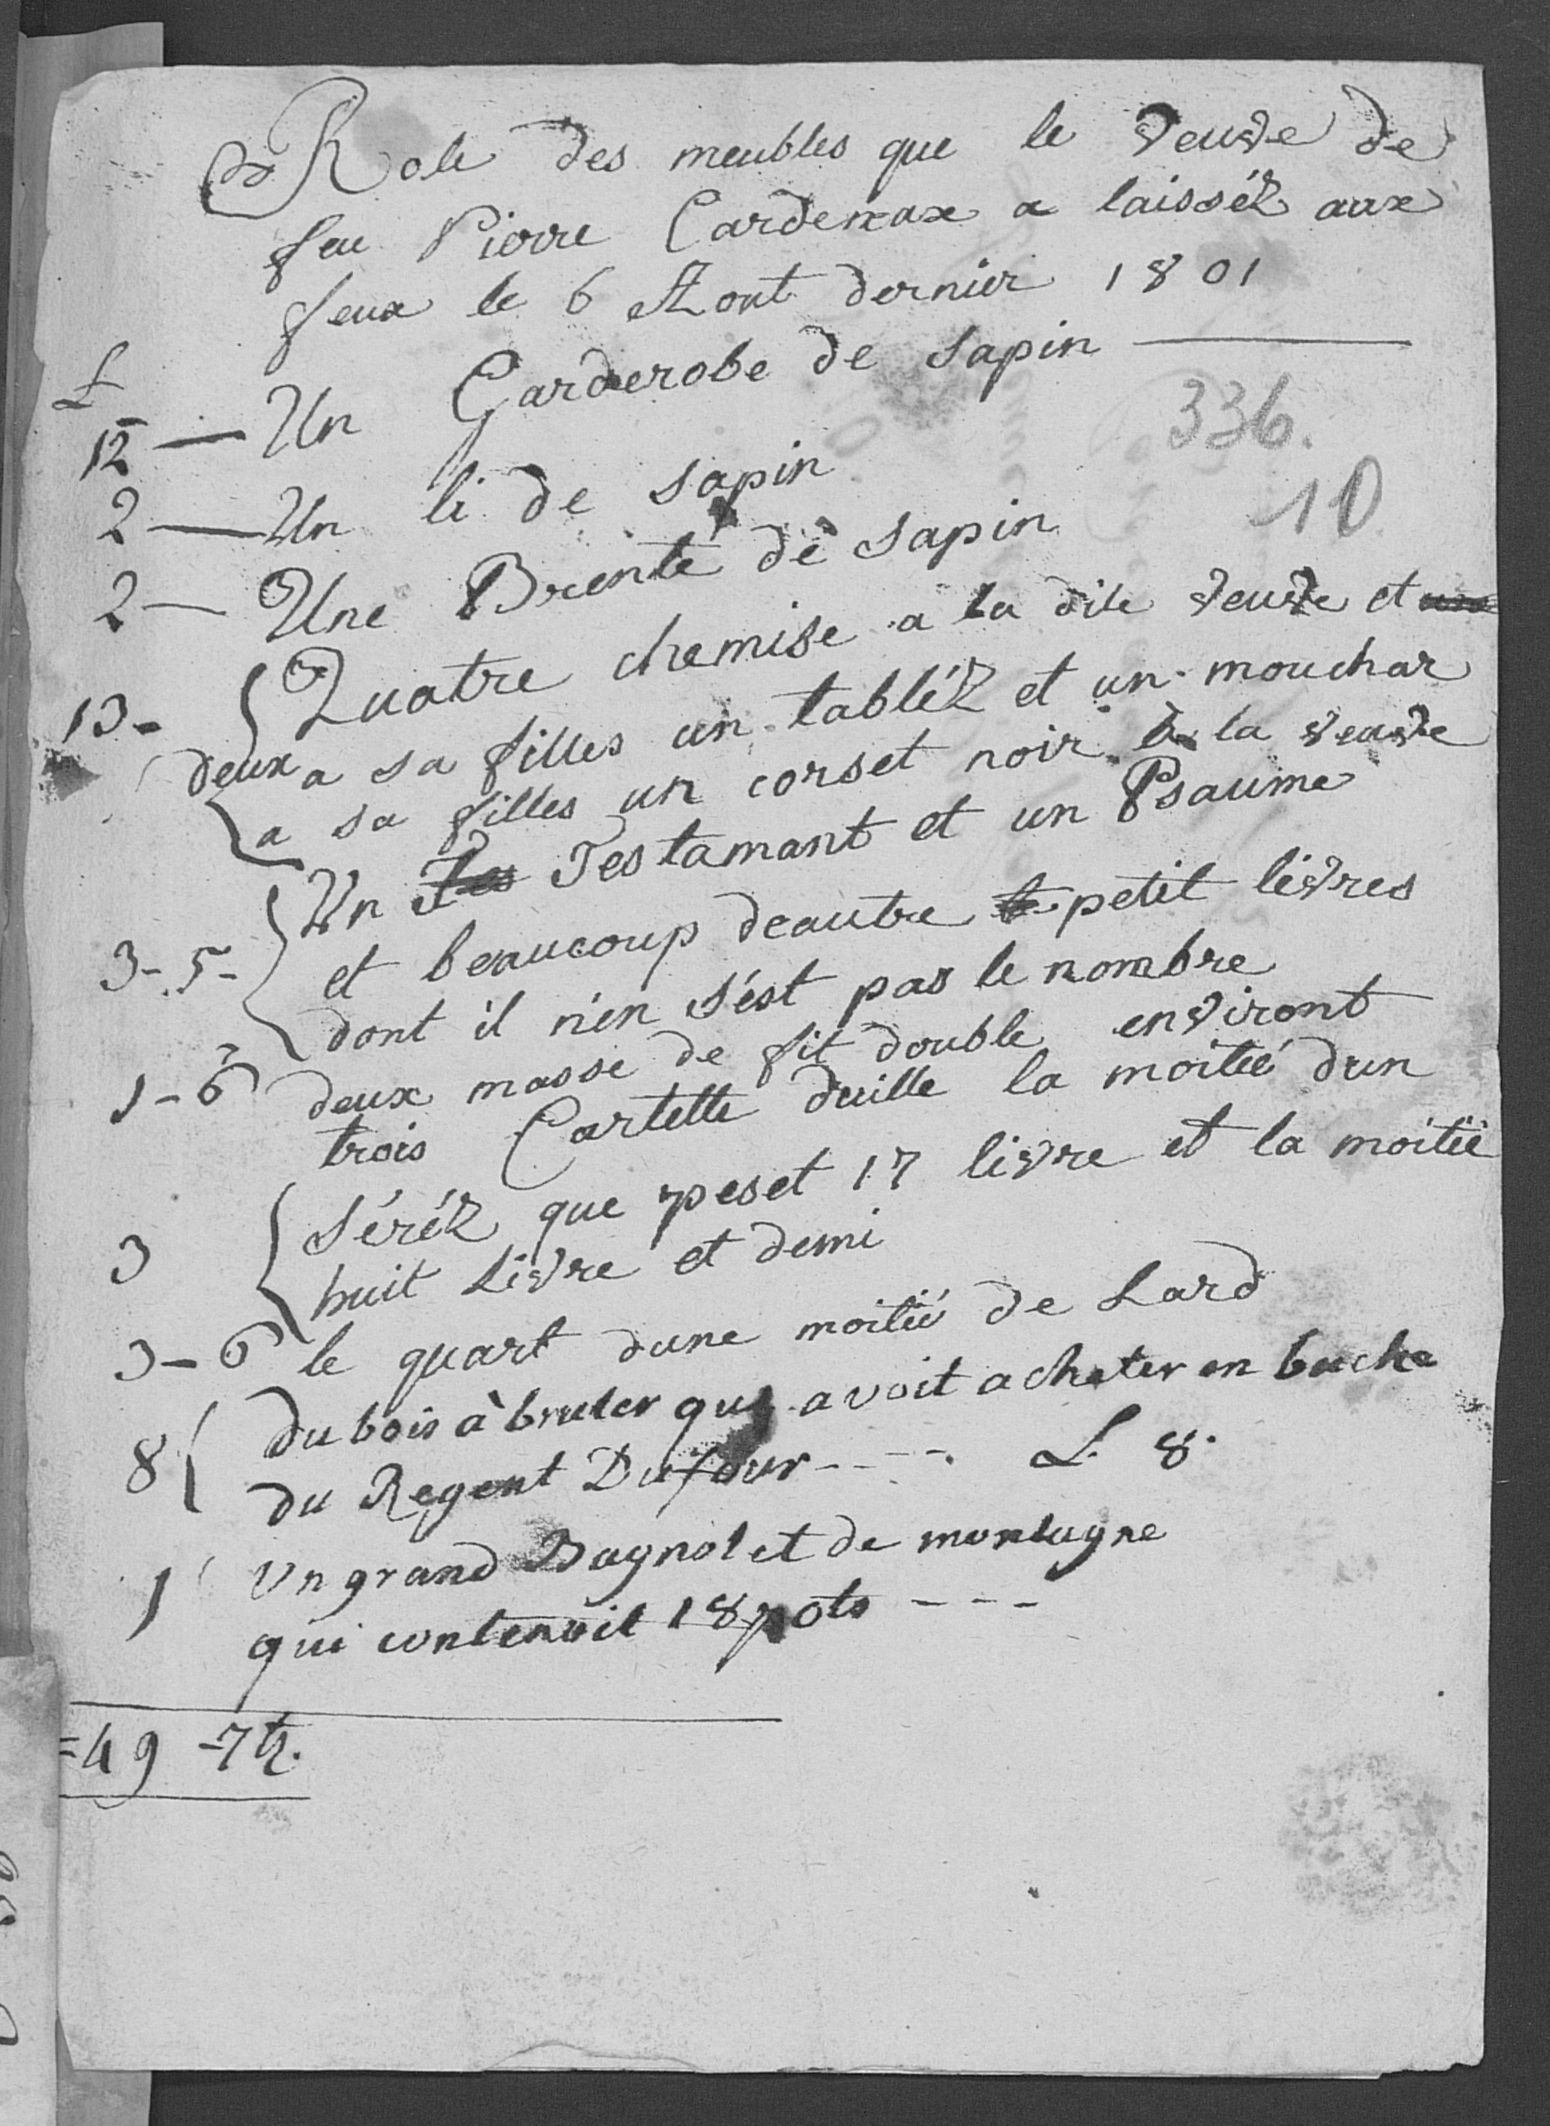 Role des meubles que le veuve de
feu Pierre Cardenaux a laissér aux
feux le 6 Aout dernier 1801
£
12 — Un Garderobe de sapin
336.
2 — Un li de sapin
10
2 — Une Brente de sapin
13 - Quatre chemise a la dite veuve et
deux a sa filles un tabléz et un mouchar
a sa filles un corset noir à la veuve
Un Testamant et un Psaume
3 - 5 - et beaucoup deautre petit livres
dont il n'en s'ést pas le nombre
1 - 6 deux masse de fit double environt
trois Cartette duille la moitié dun
séréz que peset 17 livre et la moitié
3 huit Livre et demi
3 - 6 le quart dune moitié de Lard
8 Du bois à bruler qu'avoit acheter en buche
du Regent Dufour - - - - L. 8.
1 Un grand Bagnolet de montagne
qui contenoit 18 pots - - -
= 49 - 7